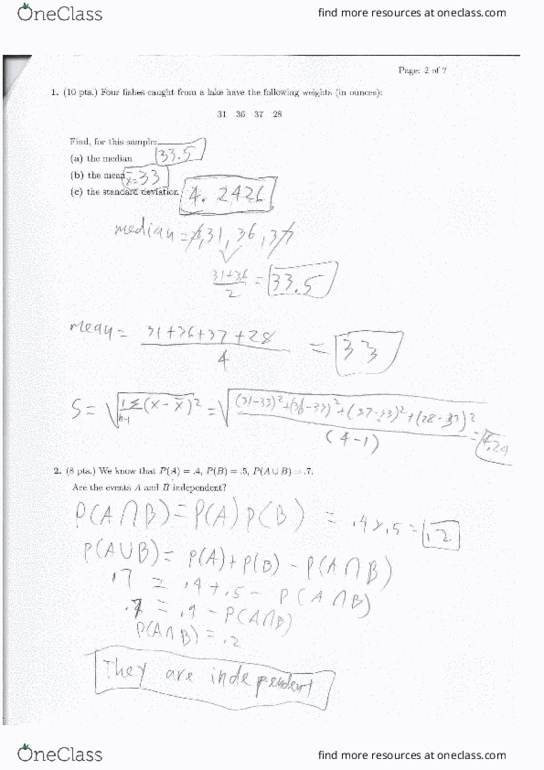 OneClass
find more resources at oneclass.com
Page: 2 of 7
1. (10 pts.) Four fishes caught from a lake have the following weights (in ounces):
31 36 37 28
Find, for this sample
(a) the median 33.5
(b) the mean x̄=33
(c) the standard deviation 4.2426
median = 31, 36,
31+36/2 = 33.5
mean = 31+36+37+28/4 = 33
S = √(1/n-1 Σ(x-x̄)²) = √((31-33)²+(36-33)²+(37-33)²+(28-33)²/(4-1)) =
2. (8 pts.) We know that P(A) = .4, P(B) = .5, P(A∪B) = .7.
Are the events A and B independent?
P(A∩B) = P(A)P(B) = .4×.5 = .2
P(A∪B) = P(A)+P(B) - P(A∩B)
.7 = .4+.5 - P(A∩B)
.7 = .9 - P(A∩B)
P(A∩B) = .2
They are independent
OneClass
find more resources at oneclass.com